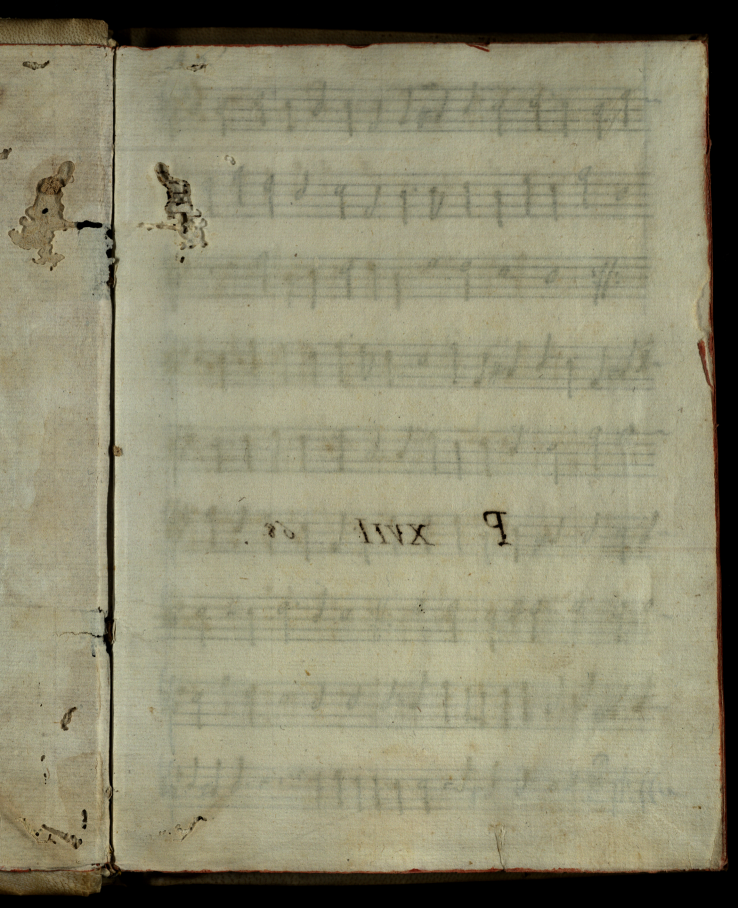 P XVII 68.